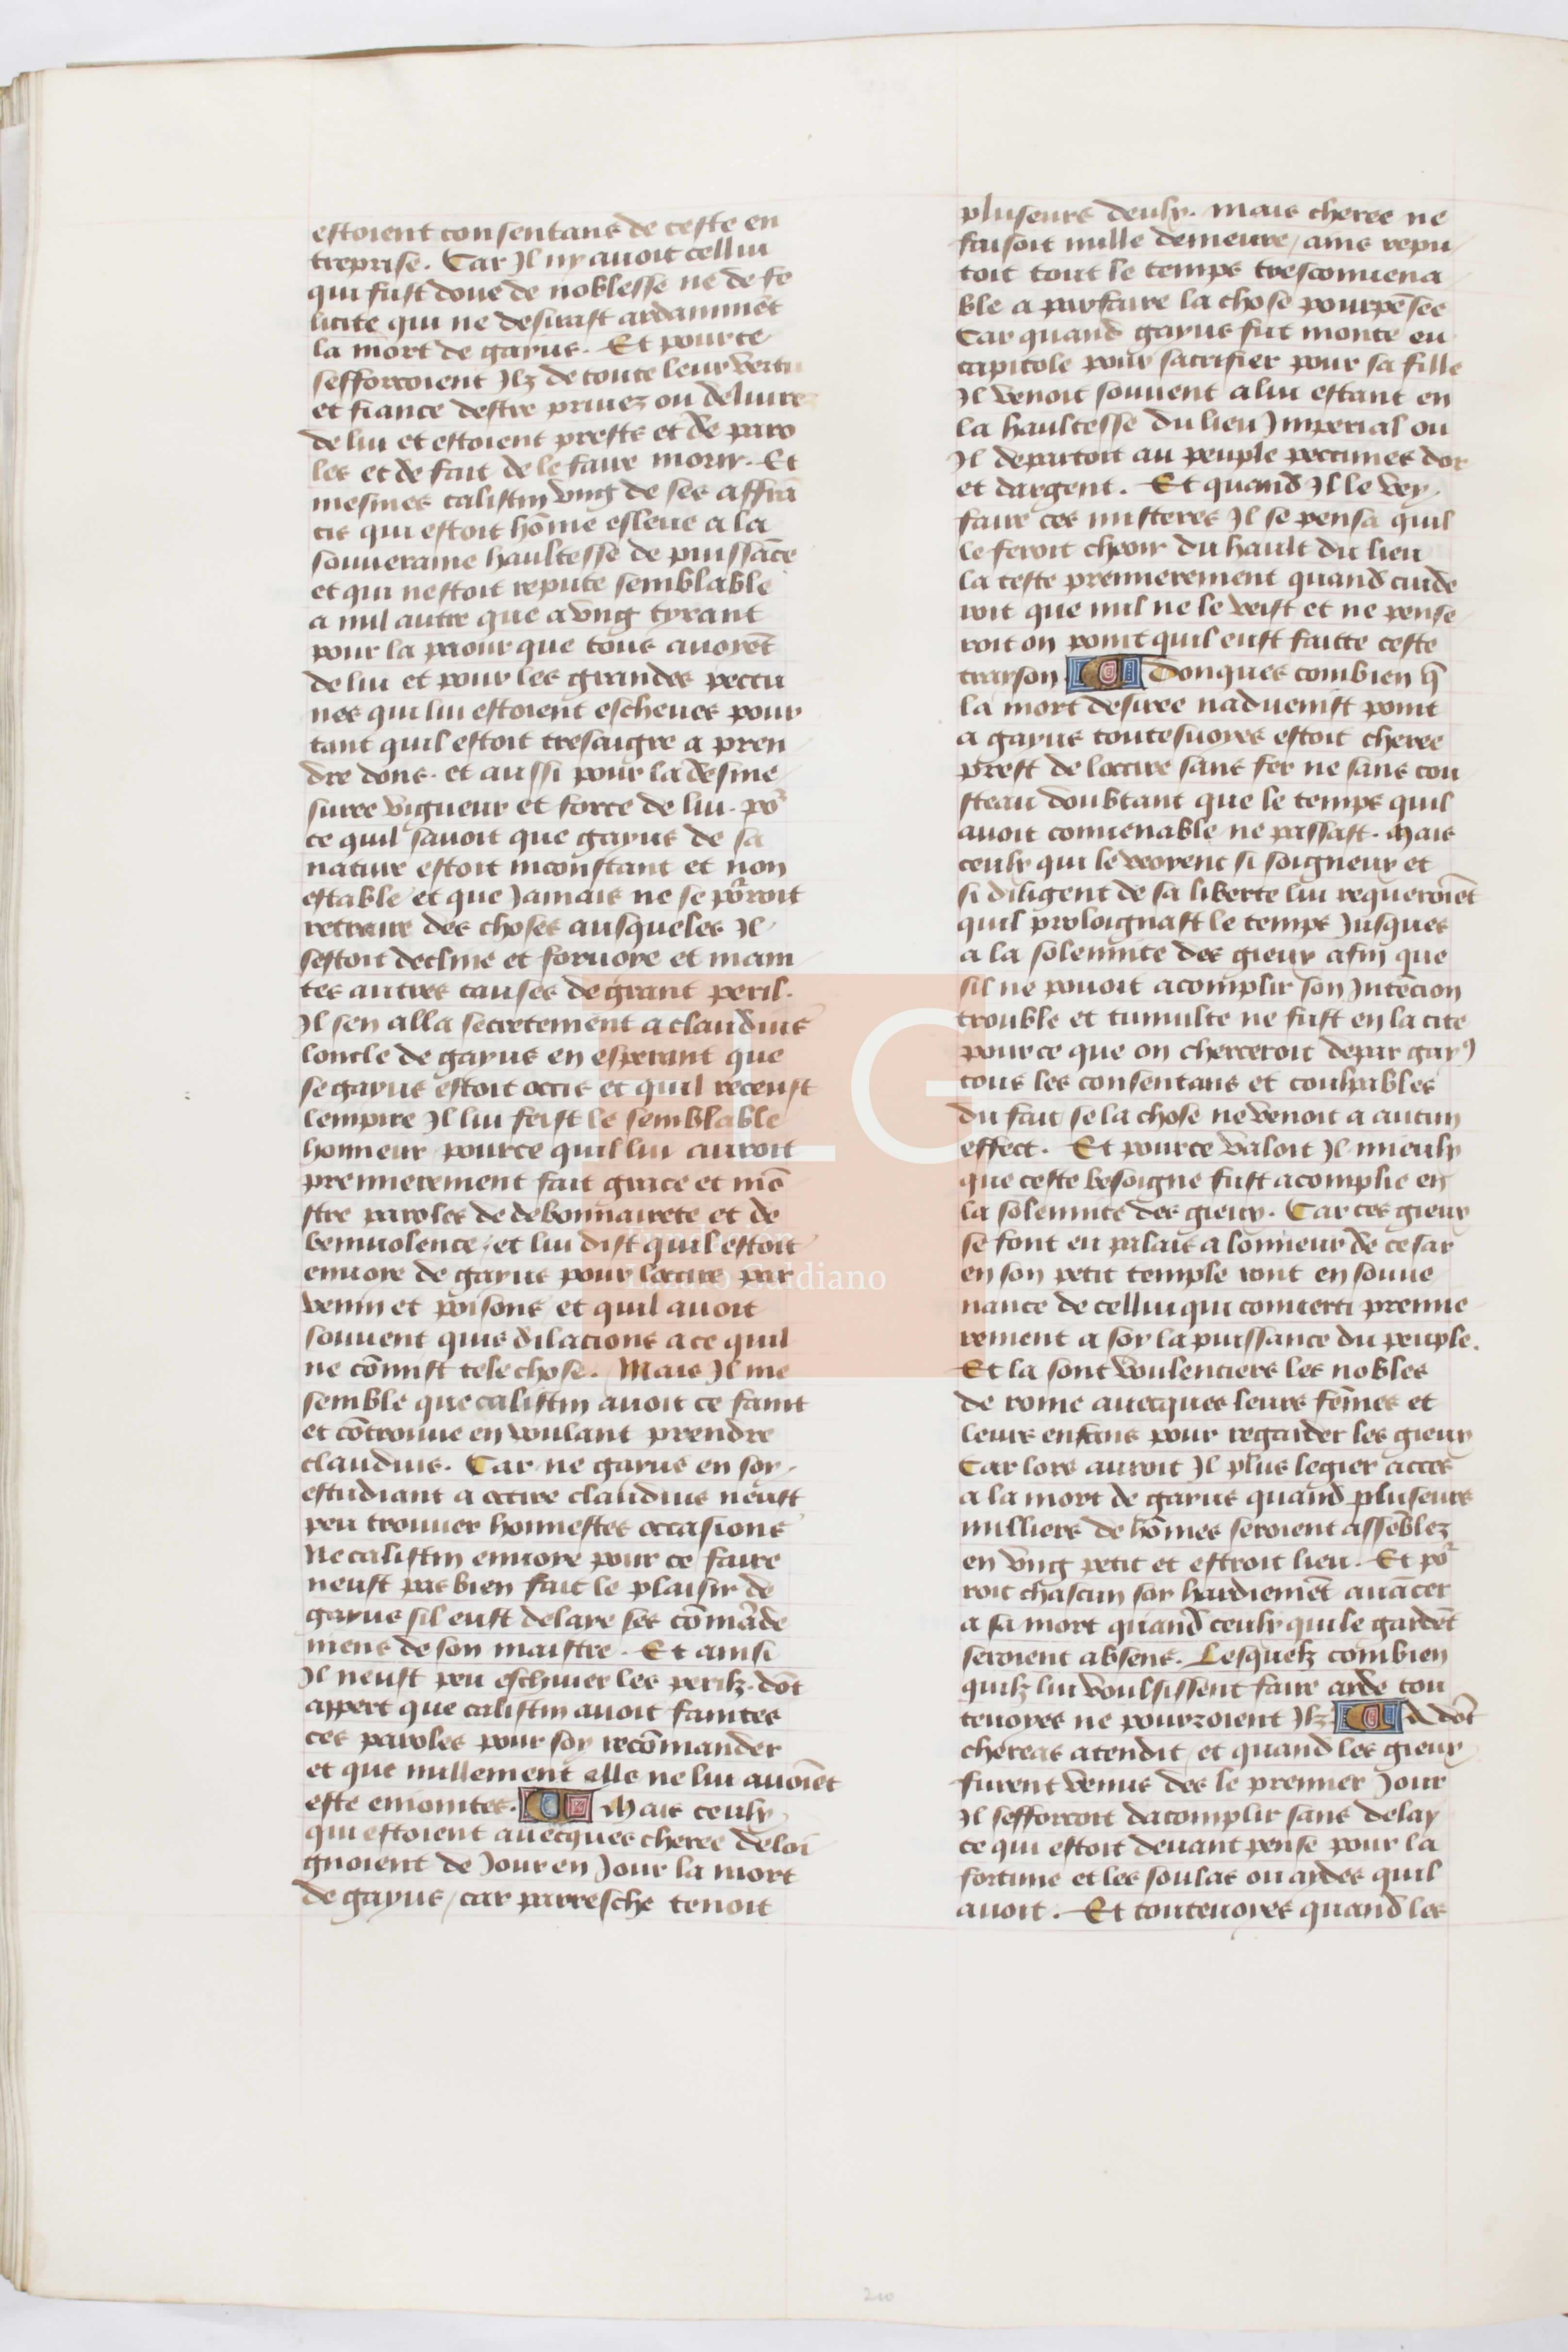 estoient consentans de ceste en
treprise. Car Il ny auoit cellui
qui fust doue de noblesse ne de fe
licite qui ne desirast ardamment
la mort de gayus. Et pource
sefforcoient Ilz de toute leur vertu
et fiance destre priuez ou deliurez
de lui et estoient prests et de paro
les et de fait de le faire morir. Et
mesmes calistin vng de ses affrā
cis qui estoit hōme esleue a la
souueraine haultesse de puissāce
et qui nestoit repute semblable
a nul autre que a vng tyrant
pour la paour que tous auoyēt
de lui et pour les grandes peccu
nes qui lui estoient escheues pour
tant quil estoit tresaigre a pren
dre dons. et aussi pour la desme
suree vigueur et force de lui. po
ce quil sauoit que gayus de sa
nature estoit inconstant et non
estable et que Jamais ne se porroit
retraire des choses ausqueles Il
sestoit decline et foruoye et main
tes autres causes de grant peril.
Il sen alla secretement a claudius
loncle de gayus en esperant que
se gayus estoit occis et quil receust
lempire Il lui feist le semblable
honneur pource quil lui auroit
premierement fait grace et mō
stre paroles de debonnairete et de
beniuolence, et lui dist quil estoit
enuoye de gayus pour loccire par
venin et poisons et quil auoit
souuent quis dilacions a ce quil
ne cōmist tele chose. Mais Il me
semble que calistin auoit ce faint
et cōtrouue en voulant prendre
claudius. Car ne gayus en soy
estudiant a occire claudius neust
peu trouuer honnestes occasions
Ne calistin enuoye pour ce faire
neust pas bien fait le plaisir de
gayus sil eust delaye ses cōmāde
mens de son maistre. Et ainsi
Il neust peu escheuer les perilz. dōt
appert que calistin auoit faintes
ces paroles pour soy recōmander
et que nullement elles ne lui auoiēt
este enioinctes. Mais ceulx
qui estoient auecques cheree deloi
gnoient de Jour en Jour la mort
de gayus, car parresche tenoit
pluseurs deulx. Mais cheree ne
faisoit nulle demeure, ains repu
toit tout le temps tresconuena
ble a parfaire la chose pourpēsee
Car quand gayus fut monte eu
capitole pour sacrifier pour sa fille
Il venoit souuent a lui estant en
la haultesse du lieu Jmperial ou
Il departoit au peuple peccunes dor
et dargent. Et quand Il le vey
faire ces misteres Il se pensa quil
le feroit cheoir du hault du lieu
la teste premierement quand cuide
roit que nul ne le veist et ne pense
roit on point quil eust faitte ceste
trayson Donques combien q̄
la mort desiree naduenist point
a gayus toutesuoyes estoit cheree
prest de loccire sans fer ne sans cou
steau doubtant que le temps quil
auoit conuenable ne passast. Mais
ceulx qui le veoyent si soigneux et
si diligent de sa liberte lui requeroiēt
quil proloignast le temps Jusques
a la solennite des gieux afin que
sil ne pouoit acomplir son Jntēcion
trouble et tumulte ne fust en la cite
pource que on cherceroit depar gayꝰ
tous les consentans et coulpables
du fait se la chose ne venoit a aucun
effect. Et pource valoit Il mieulx
que ceste besoigne fust acomplie en
la solennite des gieux. Car ces gieux
se font eu palais a lonneur de cesar
en son petit temple iont en souue
nance de cellui qui conuerti premie
rement a soy la puissance du peuple.
Et la sont voulentiers les nobles
de rome auecques leurs fēmes et
leurs enfans pour regarder les gieux
Car lors auroit Il plus legier acces
a la mort de gayus quand pluseurs
milliers de hōmes seroient assēblez
en vng petit et estroit lieu. Et po
roit chascun soy hardiemēt auācer
a sa mort quand ceulx qui le gardēt
seroient absens. Lesquelz combien
quilz lui voulsissent faire ayde tou
teuoyes ne pourroient Ilz A dōt
chereas atendit, et quand les gieux
furent venus des le premier Jour
Il sefforcoit dacomplir sans delay
ce qui estoit deuant pense pour la
fortune et les soulas ou aydes quil
auoit. Et touteuoyes quand les
210
LG
Fundación
Lázaro Galdiano